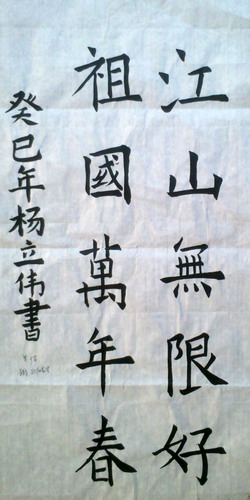 江山無限好
祖國萬年春
癸巳年杨立伟書